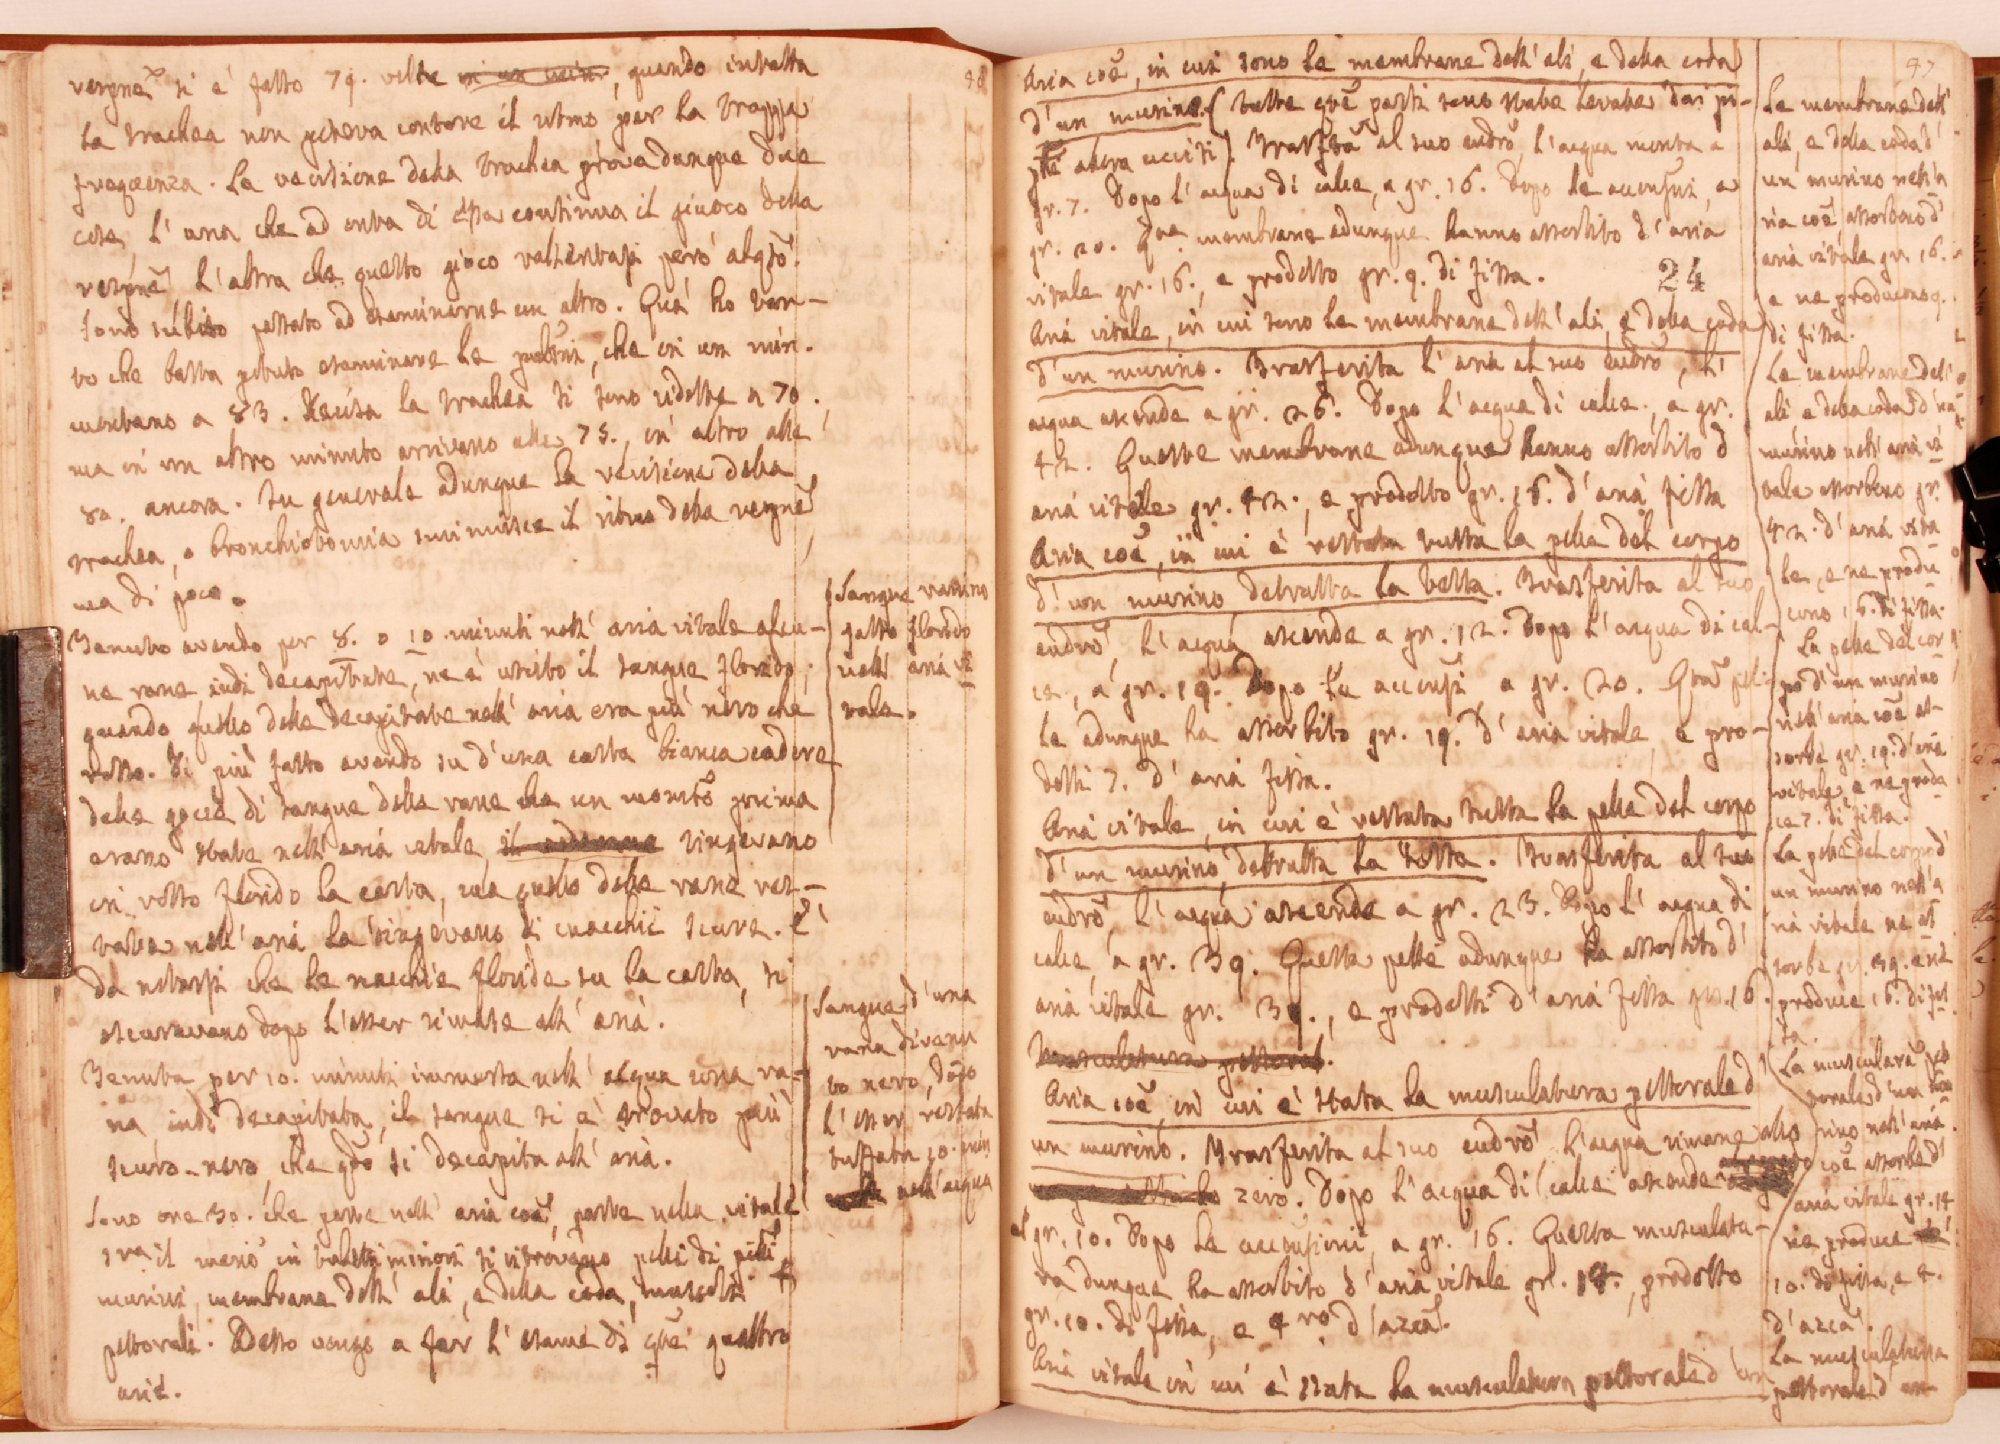 si è fatto 79. volte quando intatta
la trachea non poteva contare il ritmo per la troppa
frequenza. La recisione della trachea prova dunque due
cose, l'una che ad onta di essa continua il giuoco della
l'altra che questo gioco rallentasi però
Sono subito passato ad esaminarne un altro. Qua ho
che basta potuto esaminare le che in un min.
a 83. Recisa la trachea si sono ridotte a 70.
ma in un altro minuto arrivano alle 75., in altro alle
80. ancora. In generale adunque la recisione della
trachea, o bronchiotomia sminuisce il ritmo della
ma di poco.
Tenuto avendo per 8. o 10. minuti nell' aria vitale alcu-
ne rane indi decapitate, ne è uscito il sangue florido,
quando quello delle decapitate nell' aria era più nero che
rosso. Di più fatto avendo su d'una carta bianca cadere
delle gocce di sangue delle rane che un prima
erano state nell' aria vitale, tingevano
in rosso florido la carta, ma quello delle rane res-
tate nell' aria la tingevano di macchie scure. È
da notarsi che le macchie floride su la carta, si
oscuravano dopo l'esser rimase all' aria.
Tenuta per 10. minuti immersa nell' acqua una ra-
na indi decapitata, il sangue si è trovato più
scuro-nero, che qdo si decapita all' aria.
Sono ore 30. che parte nell' aria coe, parte nella vitale
in minori si ritrovano pelli di
murini, membrane dell' ali, e della coda, muscoli
pettorali. Adesso vengo a far l' esame di que quattro
arie.
Sangue ranino
fatto florido
nell' aria vi
tale.
Sangue d'una
rana divenu
to nero, dopo
l'esser restata
tuffata 10. min
nell' acqua
98
97
Aria coe, in cui sono le membrane dell' ali, e della coda
d'un murino. (tutte que parti sono state levate dai pi-
allora uccisi). al suo eudro, l' acqua monta a
gr. 7. Dopo l' acqua di calce, a gr. 16. Dopo le accensni, a
gr. 20. Qne membrane adunque hanno assorbito d' aria
vitale gr. 16., e prodotto gr. 9. di fissa.
24
Aria vitale, in cui sono le membrane dell' ali, e della coda
d'un murino. Trasferita l' aria al suo eudro, l'
acqua ascende a gr. 26. Dopo l' acqua di calce, a gr.
42. Queste membrane adunque hanno assorbito d
aria vitale gr. 42., e prodotto gr. 16. d' aria fissa
Aria coe, in cui è restata tutta la pelle del corpo
d' un murino detratta la testa. Trasferita al suo
eudro, l' acqua ascende a gr. 12. Dopo l' acqua di cal-
ce, a gr. 19. Dopo le accensni a gr. 20. Qta pel-
le adunque ha assorbito gr. 19. d' aria vitale, e pro-
dotti 7. d' aria fissa.
Aria vitale, in cui è restata tutta la pelle del corpo
d' un murino, detratta la testa. Trasferita al suo
eudro, l' acqua ascende a gr. 23. Dopo l' acqua di
calce, a gr. 39. Questa pelle adunque ha assorbito d'
aria vitale gr. 39., e prodotti d' aria fissa gr. 16.
Muscolatura pettoral.
Aria coe, in cui è stata la muscolatura pettorale d'
un murino. Trasferita al suo eudro l' acqua rimane allo
zero. Dopo l' acqua di calce ascende
gr. 10. Dopo le accensioni, a gr. 16. Questa muscolatu-
ra dunque ha assorbito d' aria vitale gr. 14., prodotto
gr. 10. di fissa, e 4 d' azca.
Aria vitale in cui è stata la muscolatura pettorale d' un
Le membrane dell'
ali, e della coda d'
un murino nell'a
ria coe assorbono d'
aria vitale gr. 16.
e ne producono 9.
di fissa.
Le membrane dell'
ali e della coda d'un
murino nell' aria vi
tale assorbono gr.
42. d' aria vita
le, e ne produ
cono 16. di fissa.
La pelle del cor
po d'un murino
nell' aria coe as-
sorbe gr. 19. d'aria
vitale, e ne produ
ce 7. di fissa.
La pelle del corpo d'
un murino nell'a
ria vitale ne as
sorbe gr. 39. e ne
produce 16. di fis
sa.
La pet
torale d'un mu
rino nell' aria
coe assorbe d'
aria vitale gr. 14
ne produce
10. di fissa, e 4.
d' azca.
La muscolatura
pettorale d' un